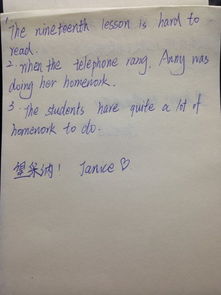 1. The nineteenth lesson is hard to
read.
2. when the telephone rang, Anny was
doing her homework.
3. The students have quite a lot of
homework to do.
望采纳! Janice ♡